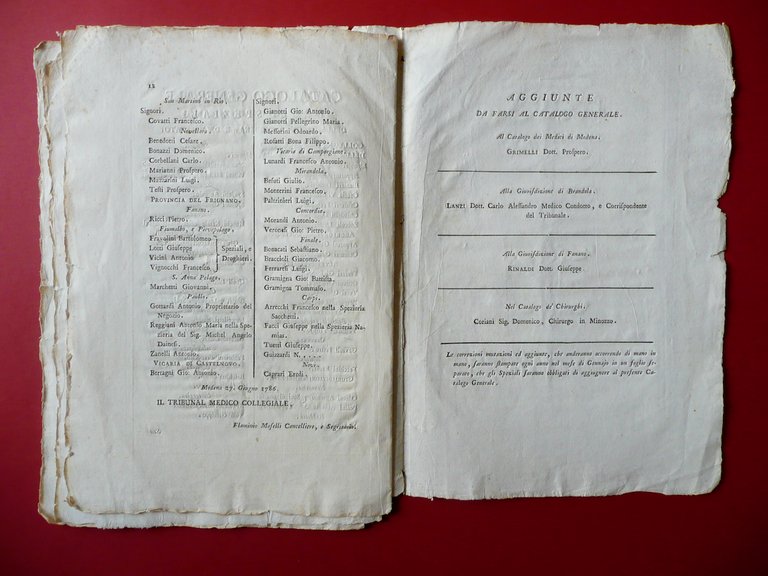 12
San Martino in Rio.
Signori.
Covatti Francesco.
Novellara.
Benedetti Cesare.
Bonazzi Domenico.
Corbellani Carlo.
Marianni Prospero.
Mattarini Luigi.
Testi Prospero.
PROVINCIA DEL FRIGNANO.
Fanano.
Ricci Pietro.
Fiumalbo, e Pievepelago.
Frassolini Bartolomeo
Lotti Giuseppe
Vicini Antonio
Vignocchi Francesco
Speziali, e
Droghieri.
S. Anna Pelago.
Marchetti Giovanni.
Paullo.
Gottardi Antonio Proprietario del
Negozio.
Reggiani Antonio Maria nella Spe-
zieria del Sig. Michel Angelo
Dainesi.
Zanelli Antonio.
VICARIA DI CASTELNOVO.
Bertagni Gio: Antonio.
Signori.
Gianotti Gio: Antonio.
Gianotti Pellegrino Maria.
Messorini Odoardo.
Rosatti Bona Filippo.
Vicaria di Camporgiano.
Lunardi Francesco Antonio.
Mirandola.
Besuti Giulio.
Montorini Francesco.
Paltrinieri Luigi.
Concordia.
Morandi Antonio.
Veronesi Gio: Pietro.
Finale.
Bonacati Sebastiano.
Braccioli Giacomo.
Ferrarelli Luigi.
Gramigna Gio: Battista.
Gramigna Tommaso.
Carpi.
Arrecchi Francesco nella Spezieria
Sacchetti.
Facci Giuseppe nella Spezieria Na-
mias.
Tuessi Giuseppe.
Guizzardi N. . . . .
Novi.
Caprari Ercoli.
Modena 27. Giugno 1786.
IL TRIBUNAL MEDICO COLLEGIALE.
Flaminio Maselli Cancelliere, e Segretario.
AGGIUNTE
DA FARSI AL CATALOGO GENERALE.
Al Catalogo dei Medici di Modena.
GRIMELLI Dott. Prospero.
Alla Giurisdizione di Brandola.
LANZI Dott. Carlo Alessandro Medico Condotto, e Corrispondente
del Tribunale.
Alla Giurisdizione di Fanano.
RINALDI Dott. Giuseppe.
Nel Catalogo de' Chirurghi.
Coriani Sig. Domenico, Chirurgo in Minozzo.
Le correzioni mutazioni ed aggiunte, che anderanno occorrendo di mano in
mano, saranno stampate ogni anno nel mese di Gennajo in un foglio se-
parato, che gli Speziali saranno obbligati di aggiugnere al presente Ca-
talogo Generale.